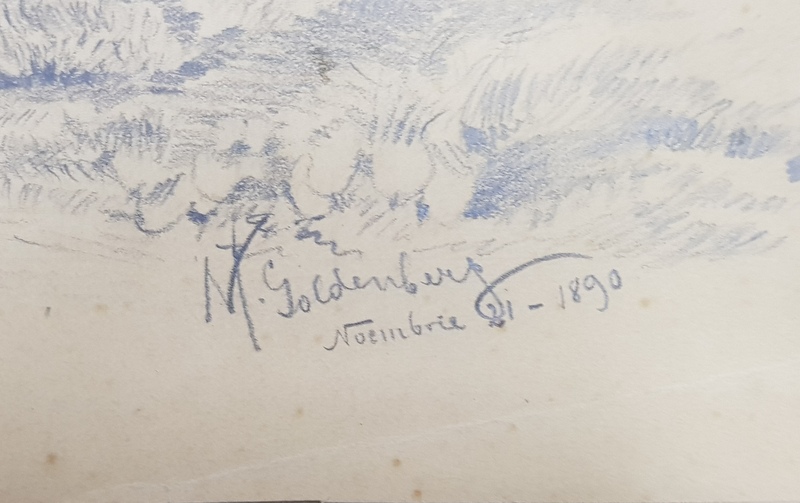 M. Goldenberg
Noembrie 21 - 1890